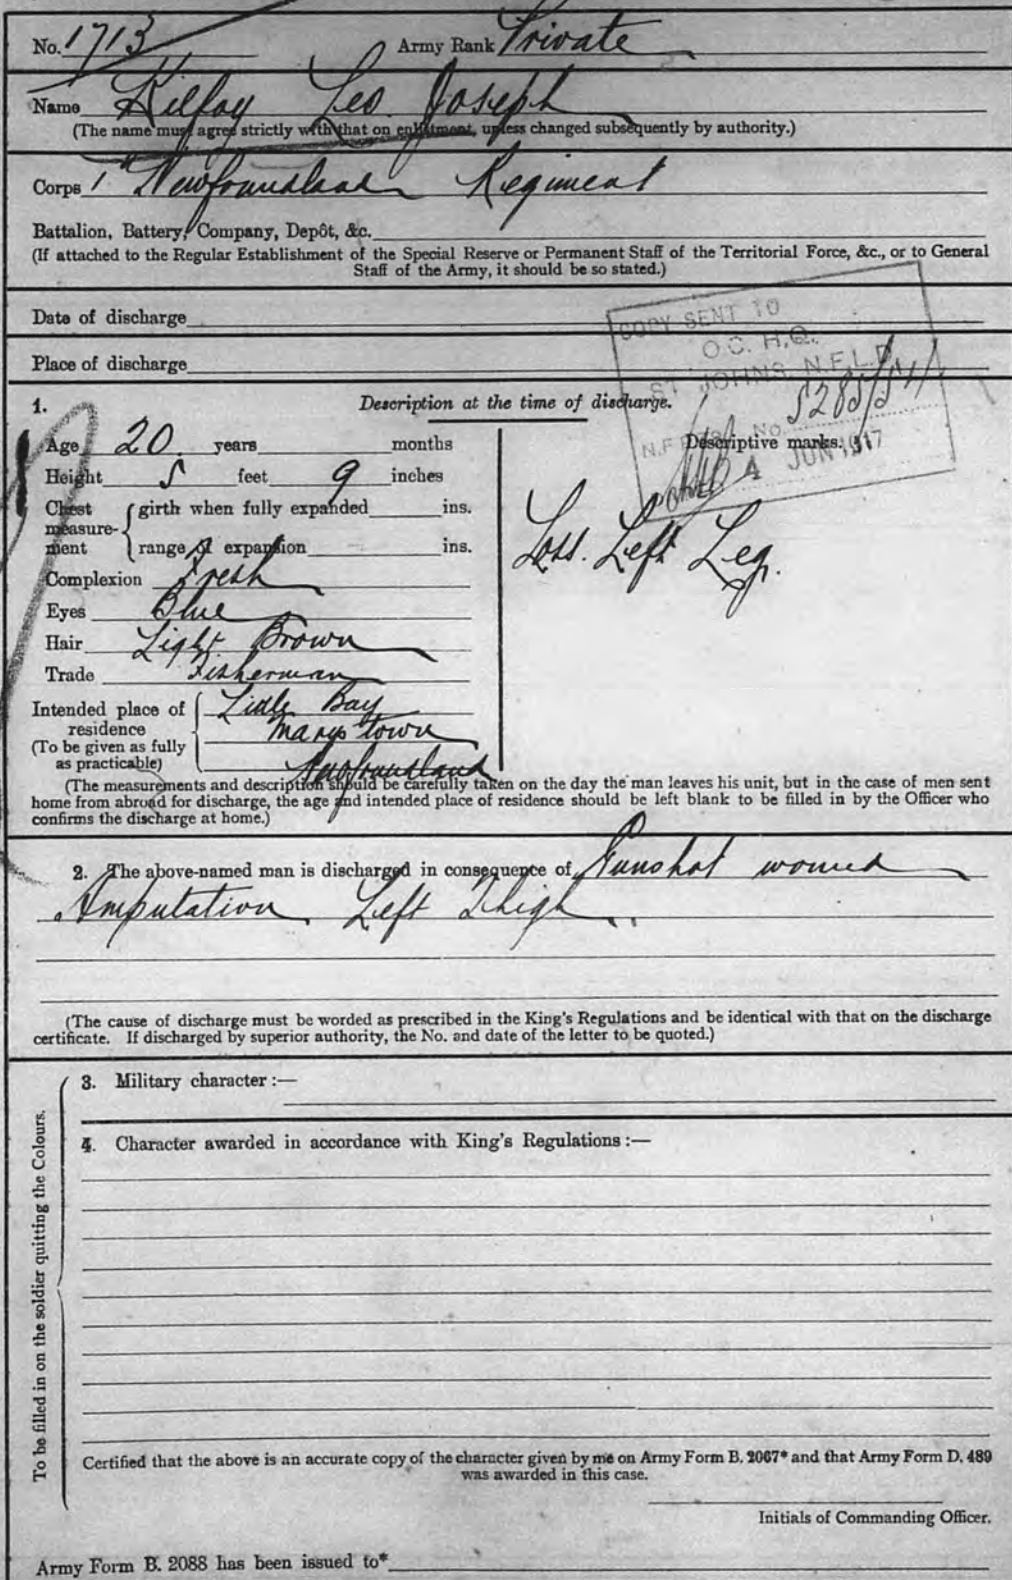 No. 1713 Army Rank Private
Name Kilfoy Leo Joseph
(The name must agree strictly with that on enlistment, unless changed subsequently by authority.)
Corps 1st Newfoundland Regiment
Battalion, Battery, Company, Depôt, &c.
(If attached to the Regular Establishment of the Special Reserve or Permanent Staff of the Territorial Force, &c., or to General
Staff of the Army, it should be so stated.)
Date of discharge
Place of discharge
COPY SENT TO
O.C. H.Q.
ST JOHNS, N.F.L.D.
N.F. No. 5285/511
4 JUN 1917
1. Description at the time of discharge.
Age 20 years months
Height 5 feet 9 inches
Chest measurement { girth when fully expanded ins.
range of expansion ins.
Complexion Fresh
Eyes Blue
Hair Light Brown
Trade Fisherman
Intended place of residence (To be given as fully as practicable) { Little Bay
Marys town
Newfoundland
Descriptive marks.
Loss. Left Leg.
(The measurements and description should be carefully taken on the day the man leaves his unit, but in the case of men sent
home from abroad for discharge, the age and intended place of residence should be left blank to be filled in by the Officer who
confirms the discharge at home.)
2. The above-named man is discharged in consequence of Gunshot wound
Amputation Left Thigh.
(The cause of discharge must be worded as prescribed in the King's Regulations and be identical with that on the discharge
certificate. If discharged by superior authority, the No. and date of the letter to be quoted.)
To be filled in on the soldier quitting the Colours.
3. Military character :—
4. Character awarded in accordance with King's Regulations :—
Certified that the above is an accurate copy of the character given by me on Army Form B. 2067* and that Army Form D. 489
was awarded in this case.
Initials of Commanding Officer.
Army Form B. 2088 has been issued to*